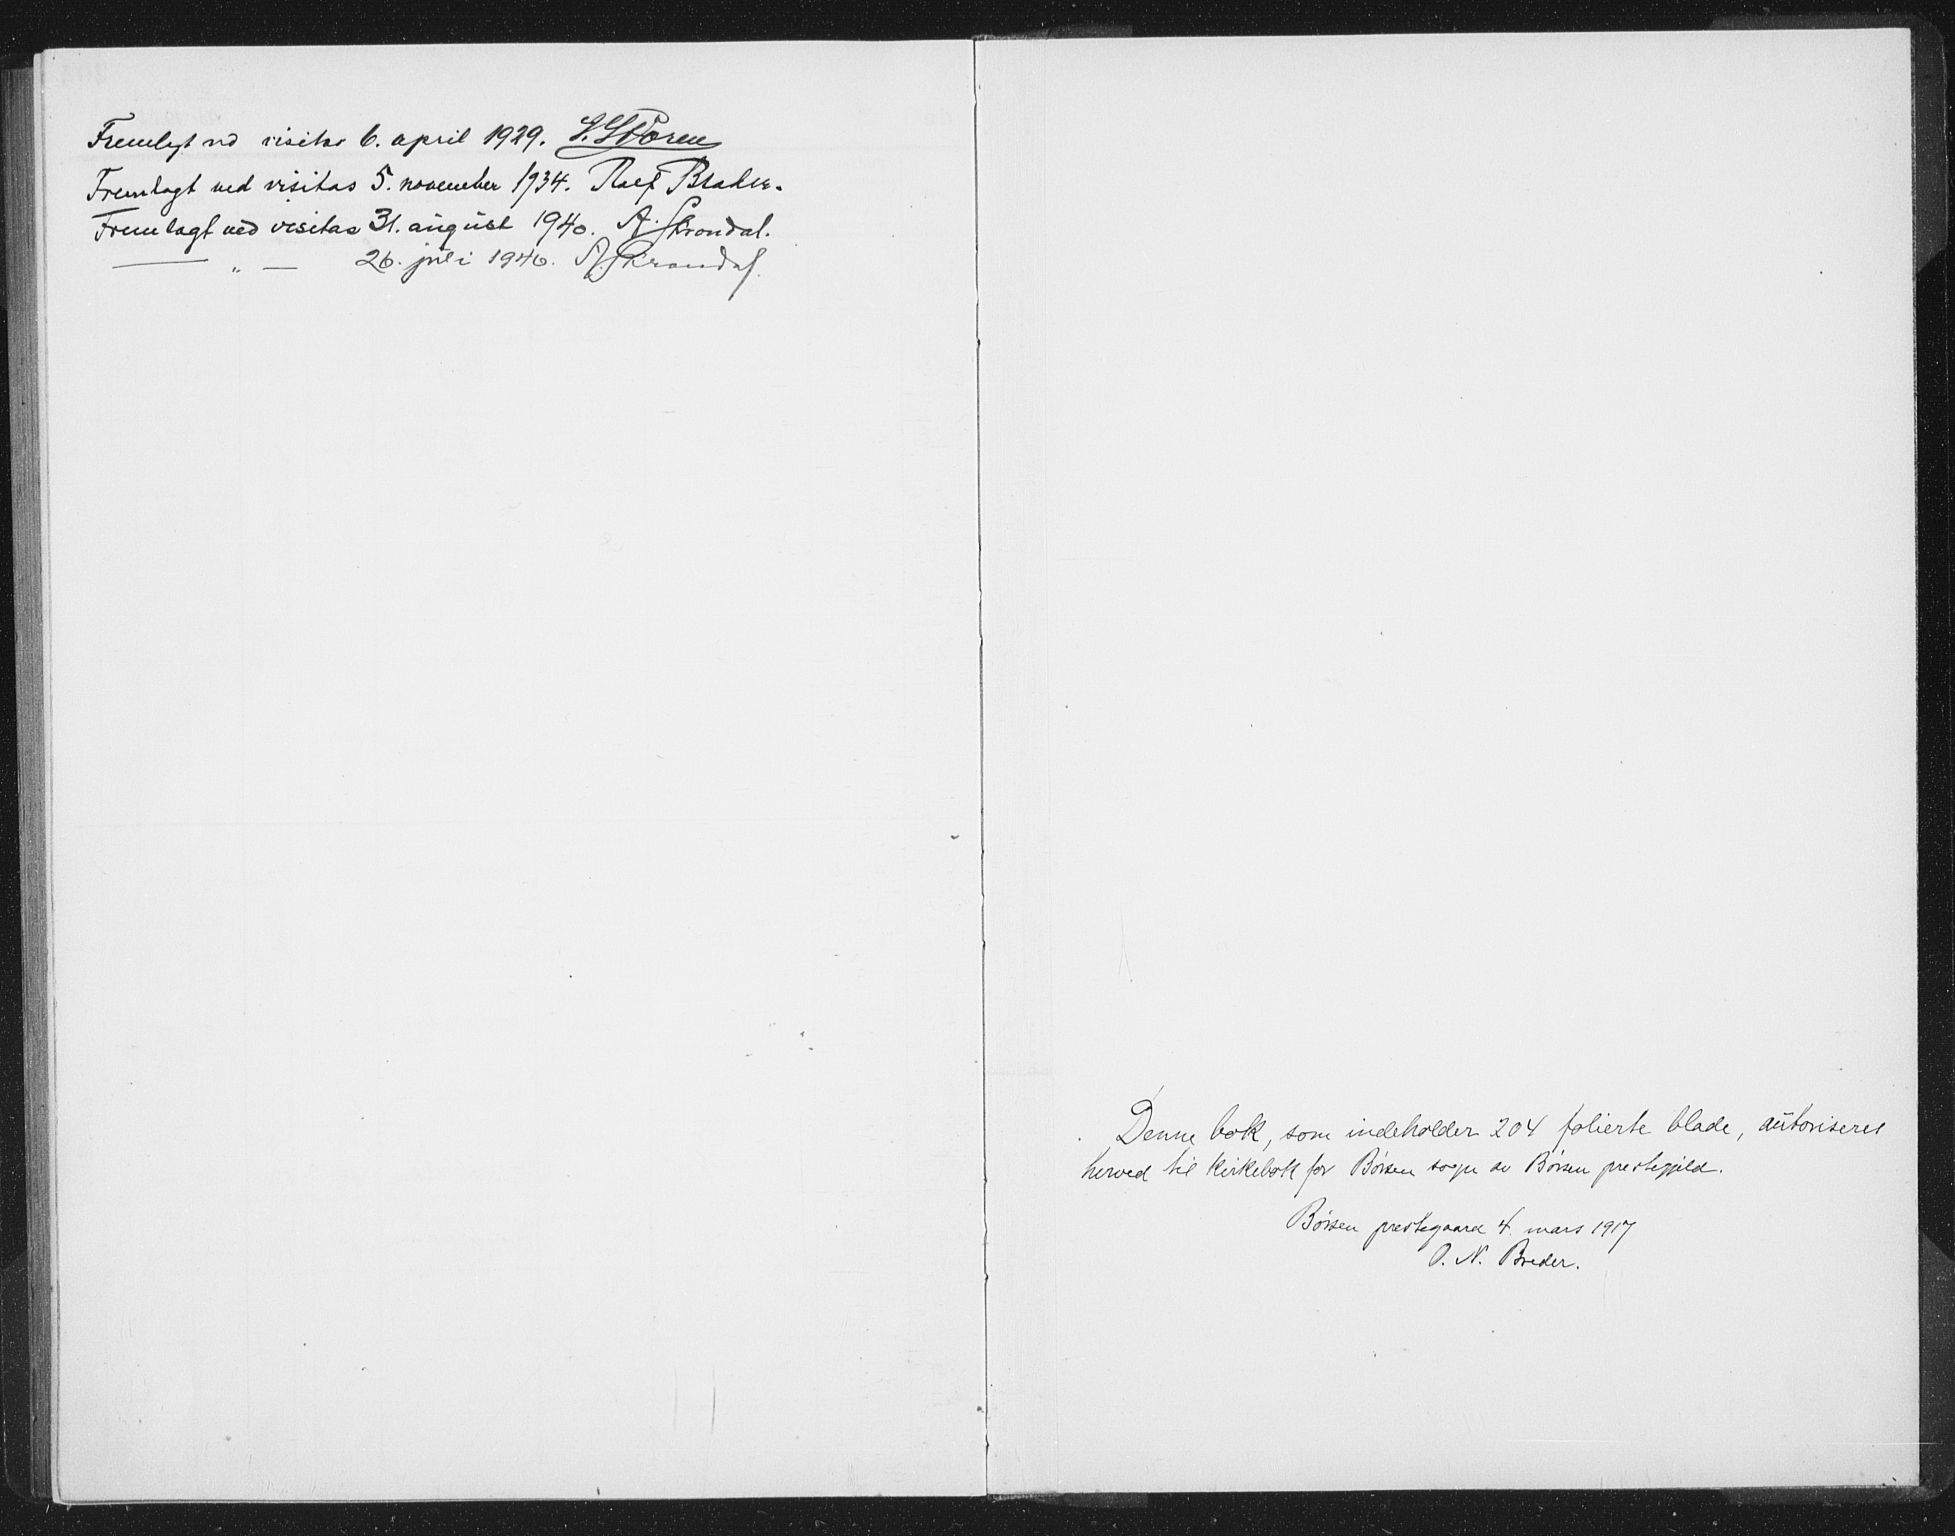 Fremlagt ved visitas 6. april 1929. J. Støren
Fremlagt ved visitas 5. november 1934.
Fremlagt ved visitas 31. august 1940. A. Skrondal.
— „ — 26. juli 1946. A. Skrondal.
Denne bok, som indeholder 204 folierte blade, autoriseres
herved til kirkebok for Börsen sogn av Börsen prestegjeld.
Börsen prestegaard 4. mars 1917
O. N. Breder.